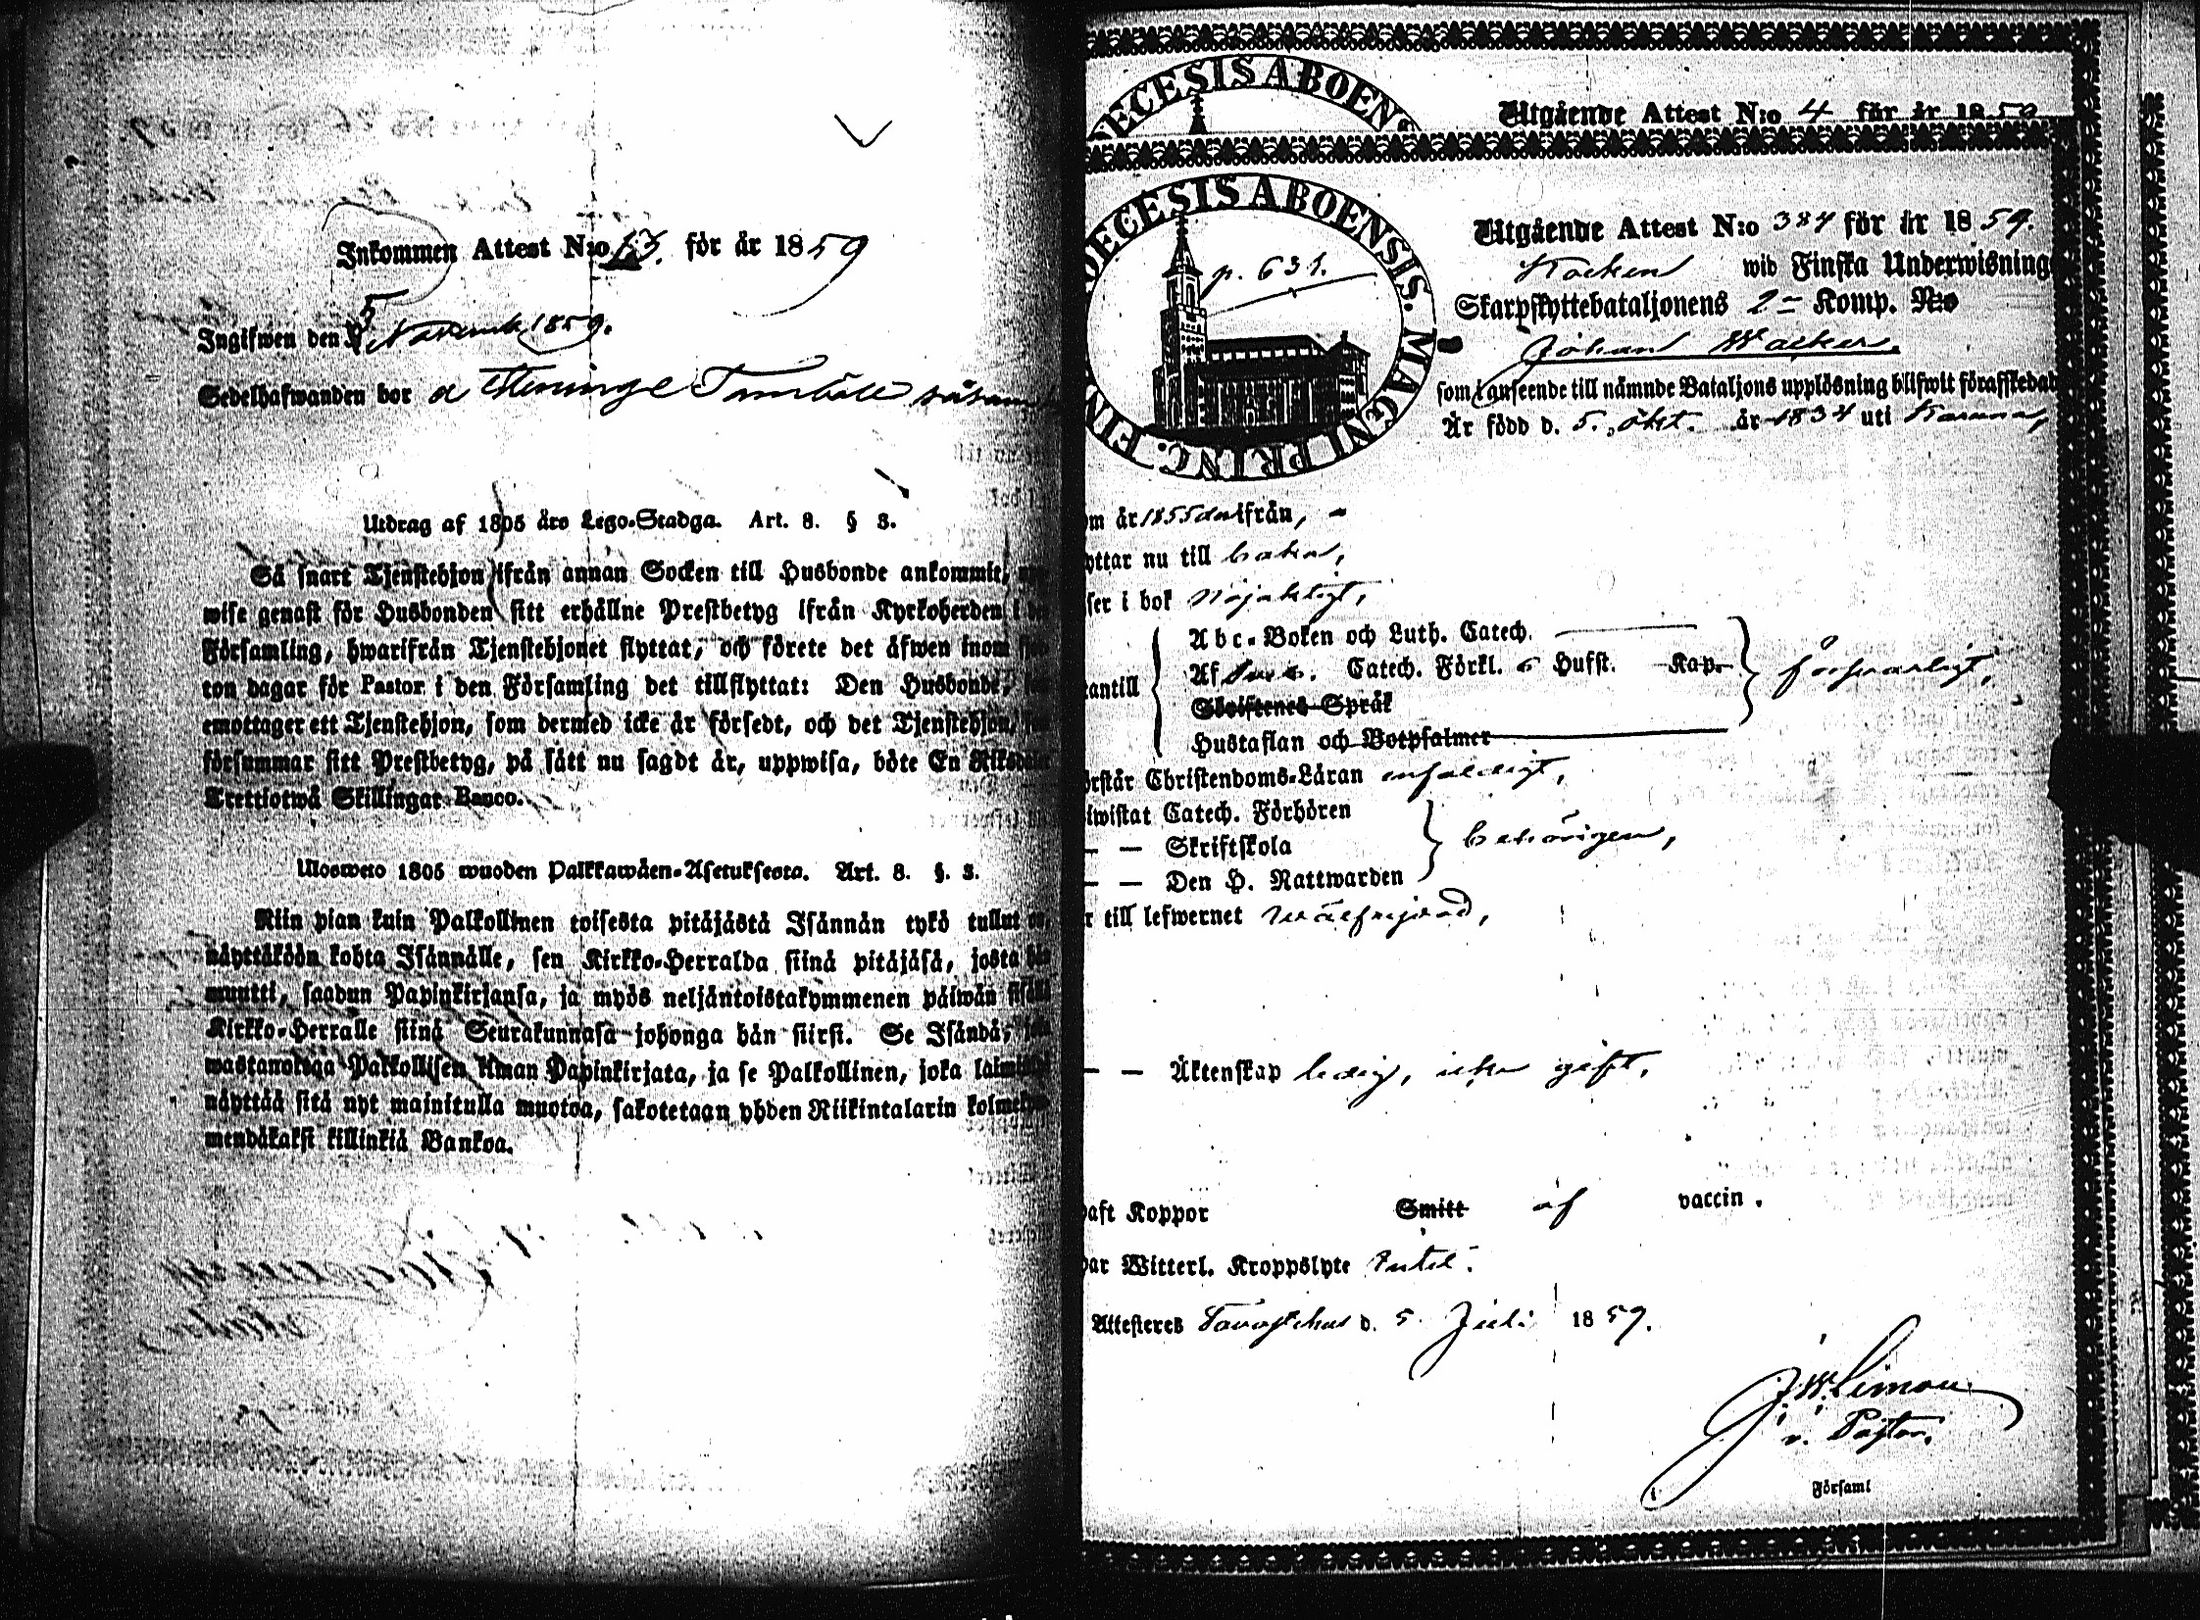 Inkommen Attest N:o 13. för år 1859
Ingifwen den 5 November 1859.
Sedelhafwanden bor å
Utdrag af 1805 års Lego-Stadga. Art. 8. § 3.
Så snart Tjenstehjon ifrån annan Socken till Husbonde ankommit,
wise genast för Husbonden sitt erhållne Prestbetyg ifrån Kyrkoherden i
Församling, hwarifrån Tjenstehjonet flyttat, och förete det äfwen inom
ton dagar för Pastor i den Församling det tillflyttat: Den Husbonde,
emottager ett Tjenstehjon, som dermed icke är försedt, och det Tjenstehjon,
försummar sitt Prestbetyg, på sätt nu sagdt är, uppwisa, böte En Riksdaler
Trettiotwå Skillingar Banco.
Ulosweto 1805 wuoden Palkkawäen-Asetuksesta. Art. 8. §. 3.
Niin pian kuin Palkollinen toisesta pitäjästä Isännän tykö tullut on,
näyttäköön kohta Isännälle, sen Kirkko-Herralda siinä pitäjäsä, josta hän
muutti, saadun Papinkirjansa, ja myös neljäntoistakymmenen päiwän sisällä
Kirkko-Herralle siinä Seurakunnasa johonga hän siirsi. Se Isändä,
wastanottaa Palkollisen ilman Papinkirjata, ja se Palkollinen, joka
näyttää sitä nyt mainitulla muotoa, sakotetaan yhden Riikintalarin
mendäkaksi killinkiä Bankoa.
DIOECESIS ABOEN
Utgående Attest N:o 4 för år 1859
DIOECESIS ABOENSIS. MAGNI PRINC. FIN
p. 631.
Utgående Attest N:o 384 för år 1859.
Kocken wid Finska Underwisnings
Skarpskyttebataljonens 2 Komp. No
Johan Wacker.
som i anseende till nämnde Bataljons upplösning blifwit förafskedad
Är född d. 5. Okt. år 1834 uti Karuna,
om år 1855 ifrån, -
yttar nu till
ser i bok nöjaktigt,
Abc-Boken och Luth. Catech.
Af Catech. Förkl. 6 Hufst. Kap.
utantill försvarligt,
Skriftenes Språk
Hustaflan och Botpsalmer
örstår Christendoms-Läran enfaldigt,
iwistat Catech. Förhören
— — Skriftskola behörigen,
— — Den H. Nattwarden
r till lefwernet wälfrejdad,
— — Äktenskap ledig, icke gift,
haft Koppor Smitt af vaccin.
har Witterl. Kroppslyte intet.
Attesteres Tavastehus d. 5 Juli 1859.
v. Pastor.
Församl